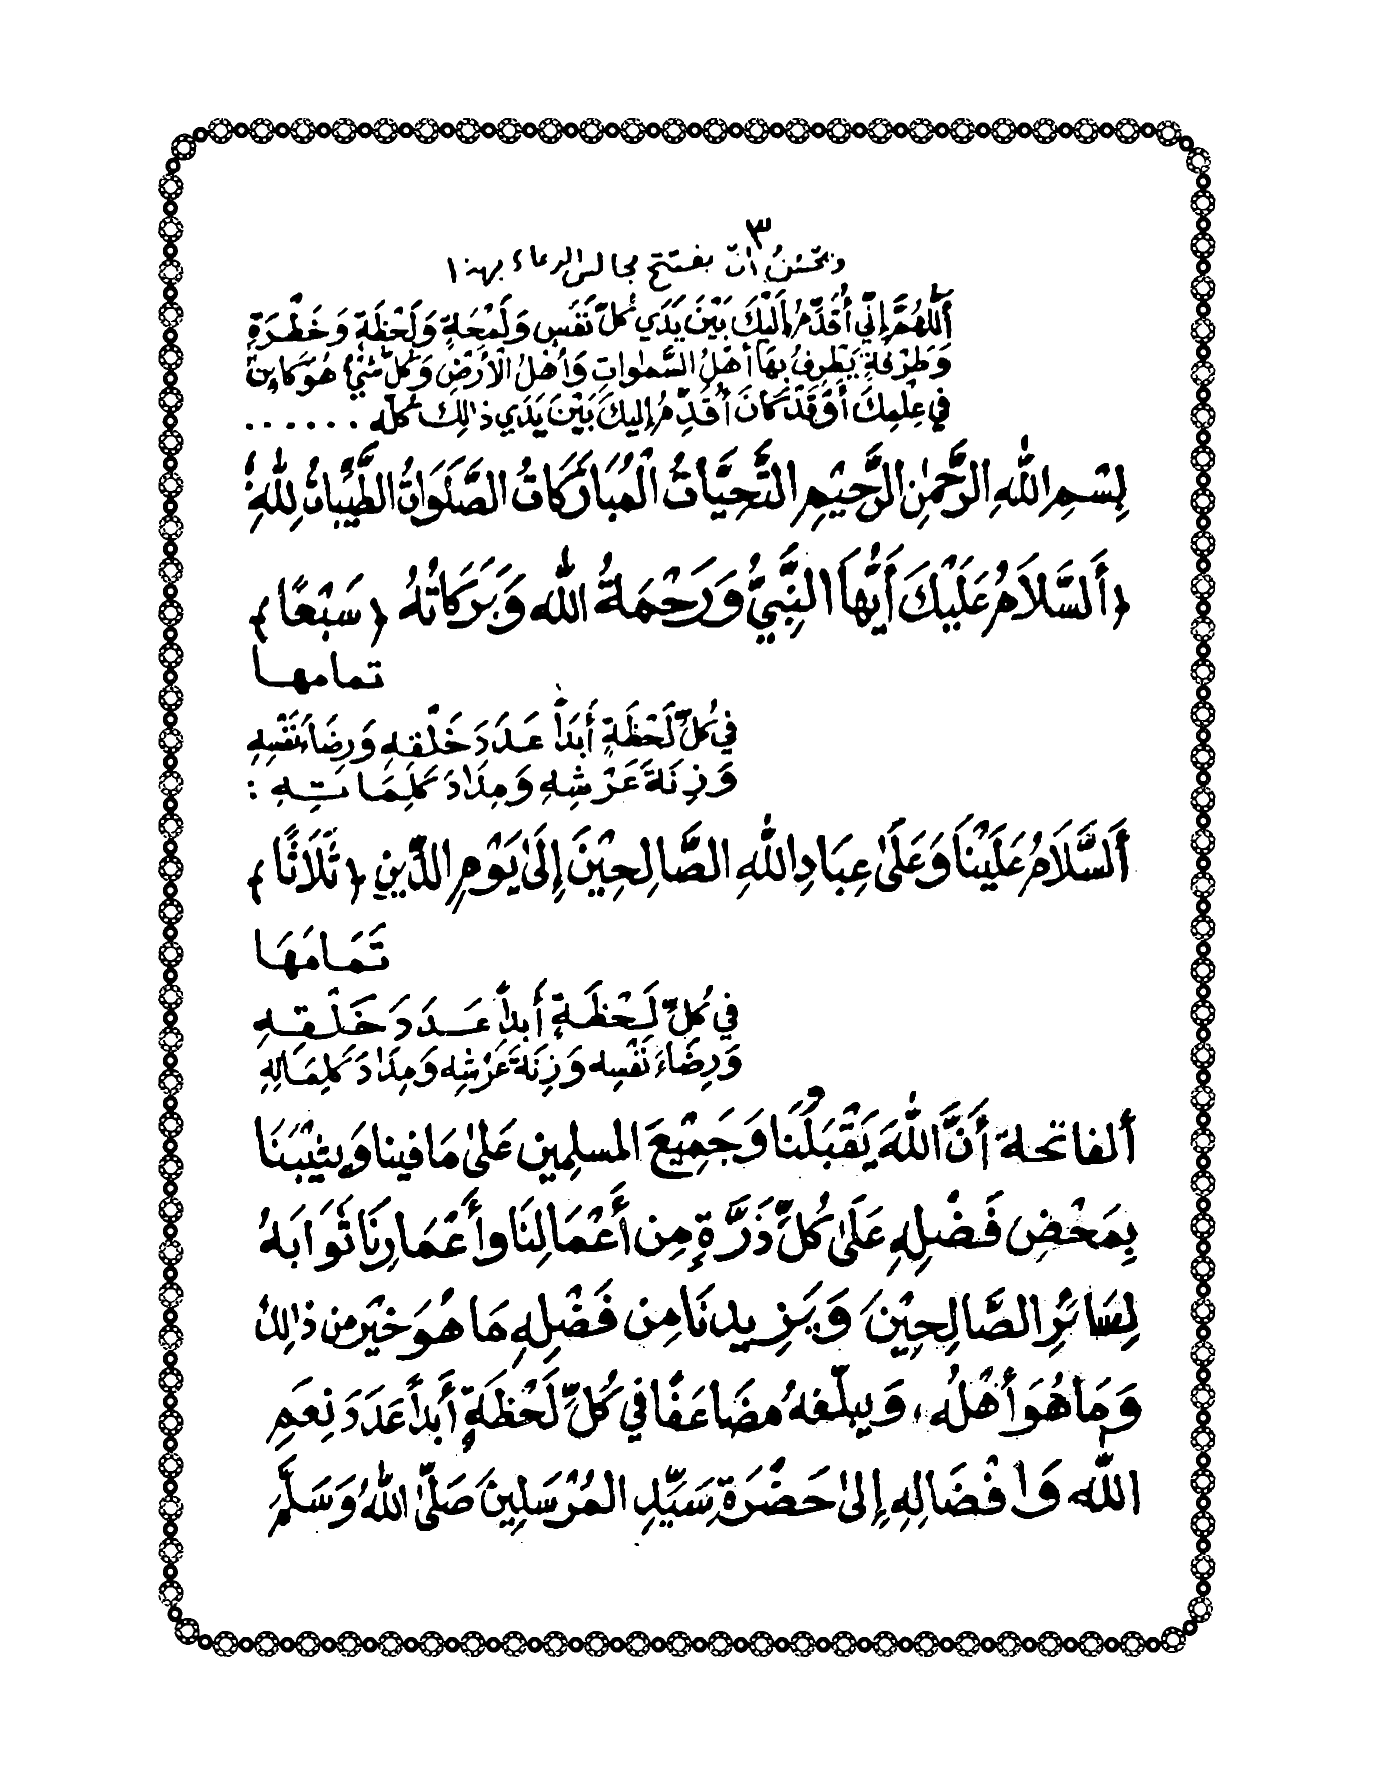 ٣
ويحسن ان يفتتح مجالس الدعاء بهذا
أَللَّهُمَّ إِنِّي أُقَدِّمُ إِلَيْكَ بَيْنَ يَدَي كُلِّ نَفَسٍ وَلَمْحَةٍ وَلَحْظَةٍ وَخَطْرَةٍ
وَطَرْفَةٍ يَطْرِفُ بِهَا أَهْلُ السَّمٰوَاتِ وَأَهْلُ الْأَرْضِ وَكُلِّ شَيْءٍ هُوَ كَائِنٌ
فِي عِلْمِكَ أَوْ قَدْ كَانَ أُقَدِّمُ إِلَيْكَ بَيْنَ يَدَي ذٰلِكَ كُلِّهِ . . . . . .
بِسْمِ اللّٰهِ الرَّحْمٰنِ الرَّحِيْمِ التَّحِيَّاتُ الْمُبَارَكَاتُ الصَّلَوَاتُ الطَّيِّبَاتُ لِلّٰهِ :
﴿أَلسَّلَامُ عَلَيْكَ أَيُّهَا النَّبِيُّ وَرَحْمَةُ اللّٰهِ وَبَرَكَاتُهُ ﴿سَبْعًا﴾
تمامها
فِي كُلِّ لَحْظَةٍ أَبَدًا عَدَدَ خَلْقِهِ وَرِضَاءَ نَفْسِهِ
وَزِنَةَ عَرْشِهِ وَمِدَادَ كَلِمَاتِهِ :
أَلسَّلَامُ عَلَيْنَا وَعَلَىٰ عِبَادِ اللّٰهِ الصَّالِحِيْنَ إِلَىٰ يَوْمِ الدِّيْنِ ﴿ثَلَاثًا﴾
تَمَامَهَا
فِي كُلِّ لَحْظَةٍ أَبَدًا عَدَدَ خَلْقِهِ
وَرِضَاءَ نَفْسِهِ وَزِنَةَ عَرْشِهِ وَمِدَادَ كَلِمَاتِهِ
أَلفاتحة أَنَّ اللّٰهَ يَقْبَلُنَا وَجَمِيْعَ المسلمين عَلىٰ مَا فِينا وَيثيْبَنَا
بِمَحْضِ فَضْلِهِ عَلَىٰ كُلِّ ذَرَّةٍ مِن أَعْمَالِنَا وأَعْمَارِنَا ثَوَابَهُ
لِسَائِرِ الصَّالِحِيْنَ وَيَزِيدنَا مِن فَضْلِهِ مَا هُوَ خَيْر من ذٰلِكَ
وَمَا هُوَ أَهْلُهُ، وَيبلّغهُ مضَاعَفًا فِي كُلِّ لَحْظَةٍ أَبَدًا عَدَدَ نِعَمِ
اللّٰهِ وَافْضَالِهِ إِلىٰ حَضْرَةِ سَيِّدِ المُرْسَلِينَ صَلَّىٰ اللّٰهُ وَسَلَّمَ